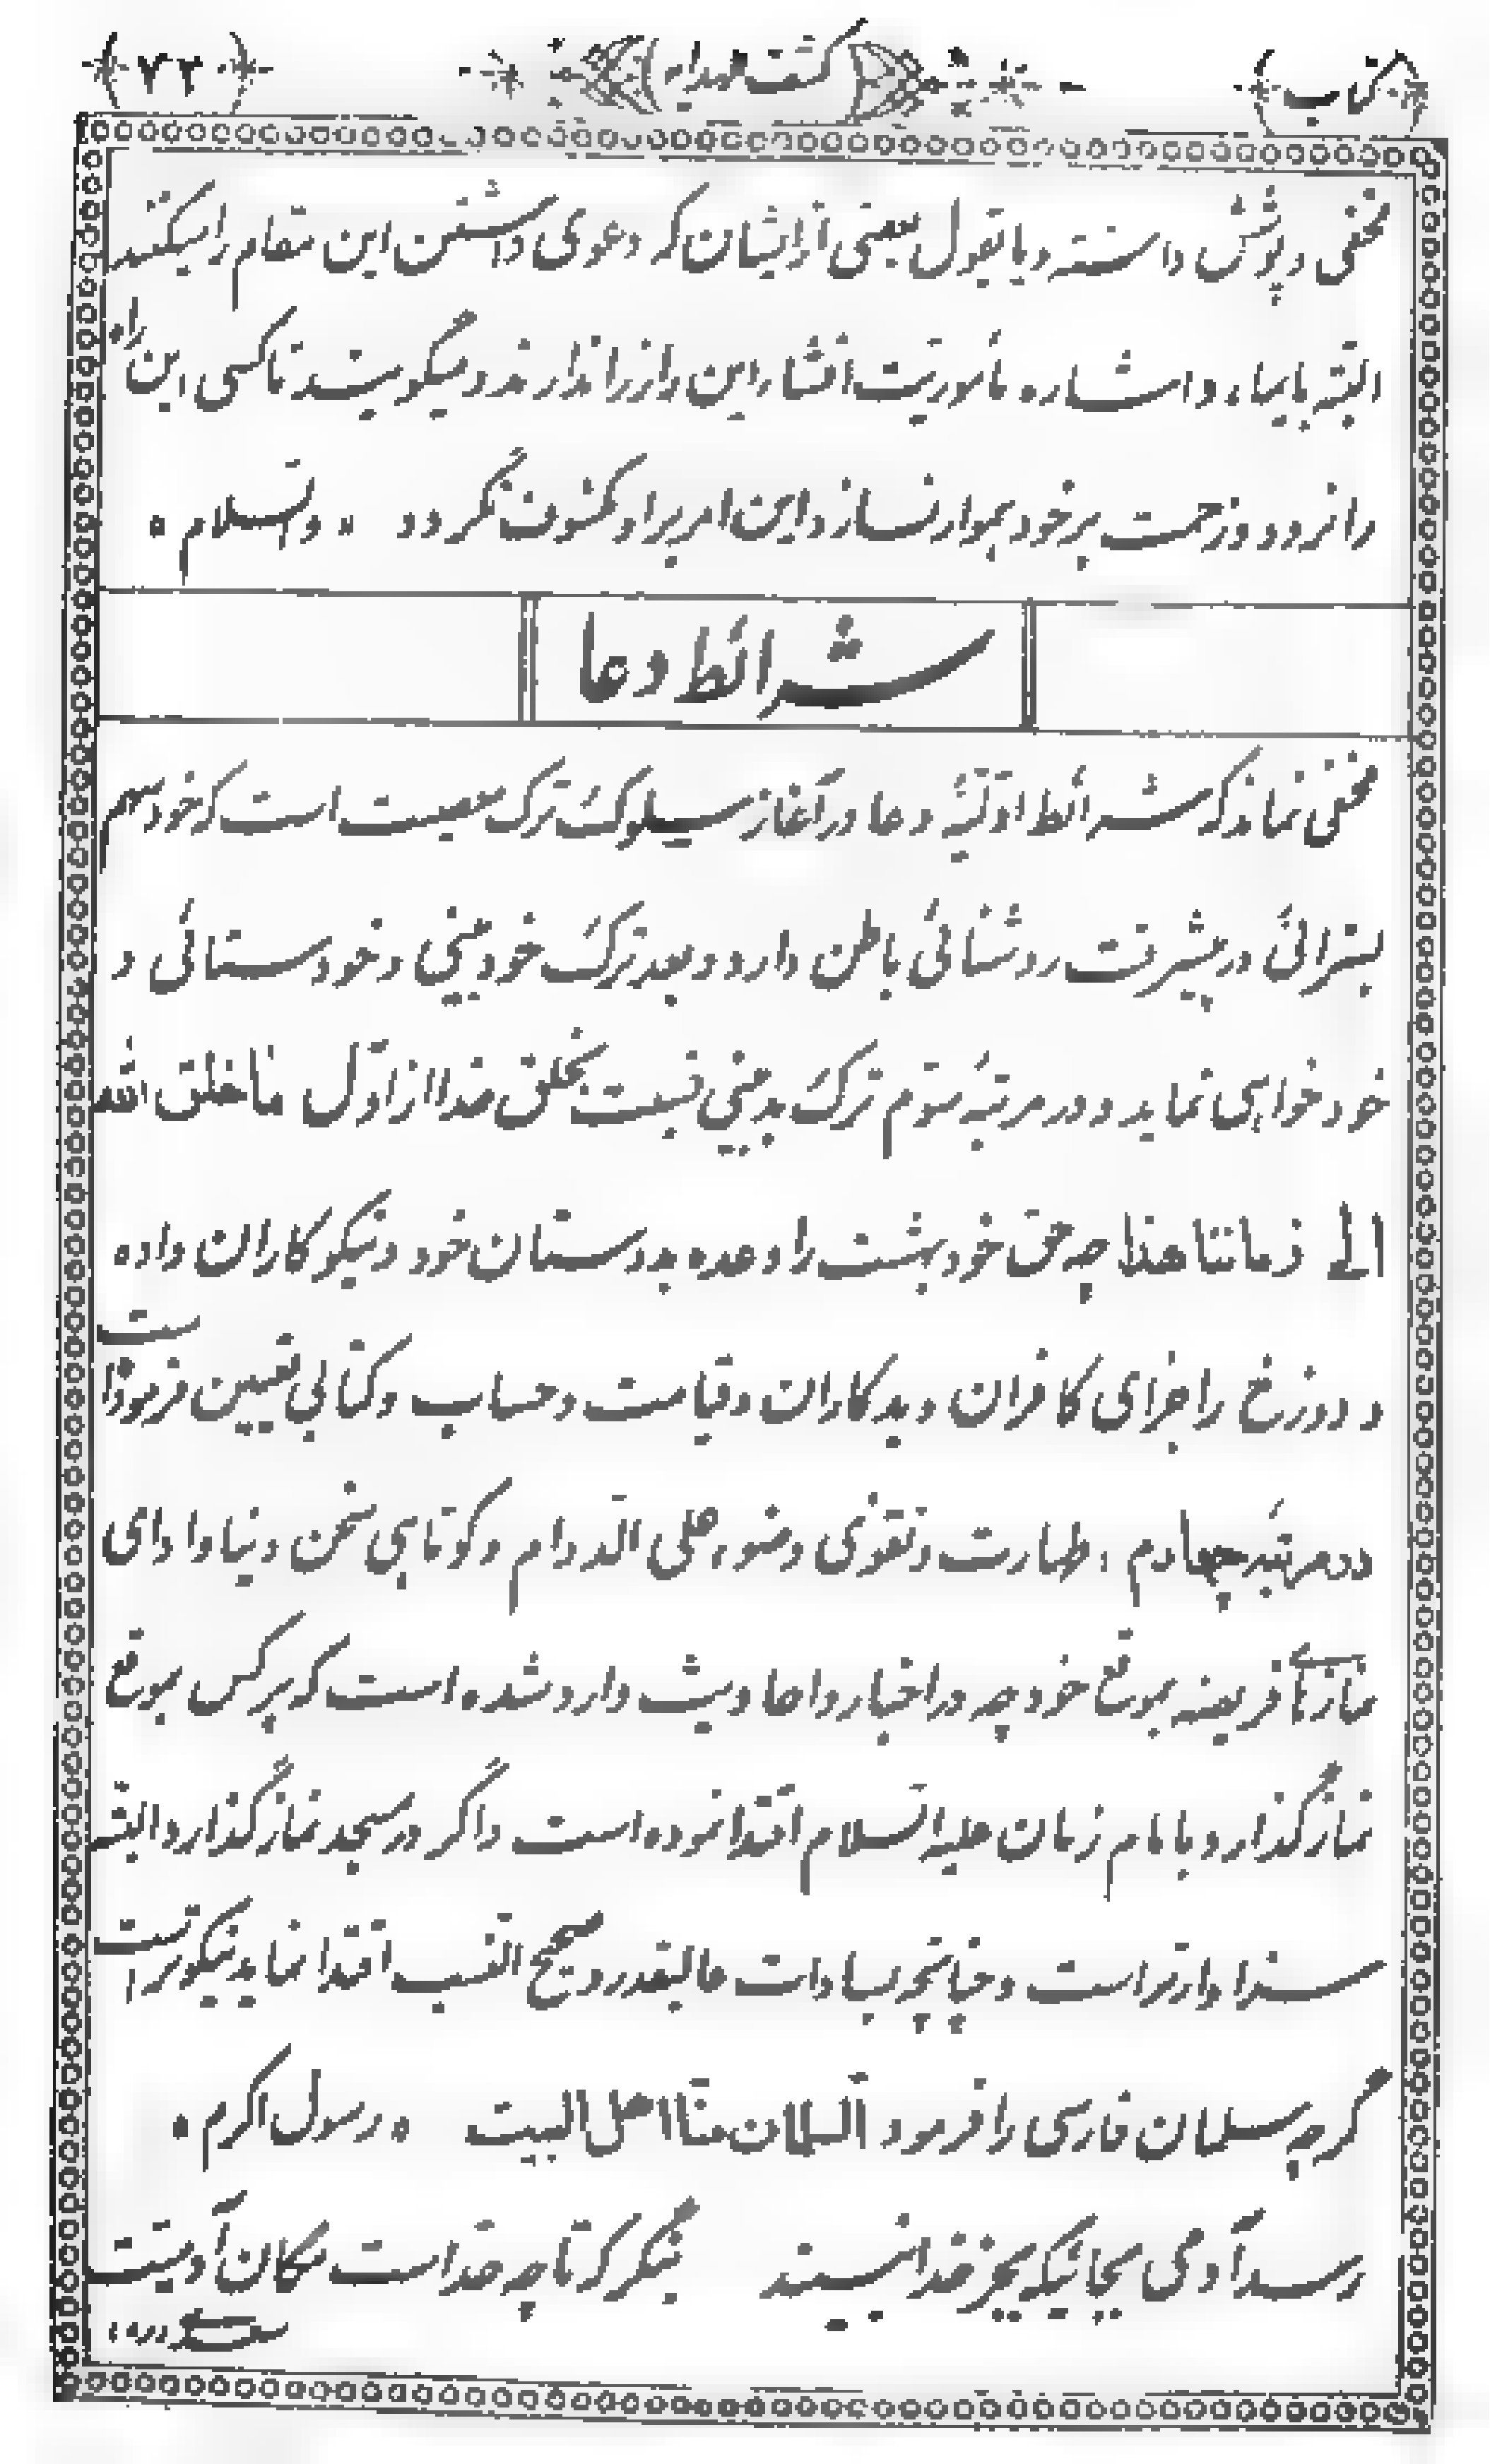 کتاب کشف الهدایه ٧٢
مخفی و پوش داسته و یا بقول بعضی از ایشان که دعوی داشتن این مقام را میکنند
البته بایماء و اشاره مأموریت افشاء این راز را ندارند و میگویند تا کسی این راه
را نرود و زحمت بر خود هموار نسازد این امر بر او مکشوف نگردد . والسلام .
شرائط دعا
مخفی نماند که شرائط اولیهٔ دعا در آغاز سیر سلوک ترک معصیت است که خود سهم
بسزائی در پیشرفت روشنائی باطن دارد و بعد ترک خودبینی و خودستائی و
خودخواهی نماید و در مرتبهٔ سوّم ترک بدبینی نسبت بخلق خدا از اوّل ما خلق الله
الی زماننا هذا چه حق خود بهشت را وعده بدوستان خود و نیکوکاران داده
و دوزخ را جزای کافران و بدکاران و قیامت و حساب و کتابی تعیین فرموده است
در مرتبهٔ چهارم ، طهارت و تقوی وضوء علی الدوام و کوتاهی سخن دنیا و ادای
نمازهای فریضه بموقع خود چه در اخبار و احادیث وارد شده است که هر کس بموقع
نماز گذارد با امام زمان علیه السلام اقتدا نموده است و اگر در مسجد نماز گذارد البته
سزاوارتر است و چنانچه بسادات عالیقدر و صحیح النسب اقتدا نماید نیکوتر است
گرچه سلمان فارسی را فرمود السلمان منا اهل البیت . رسول اکرم .
رسد آدمی بجائیکه بجز خدا نبیند بنگر که تا چه حد است مکان آدمیت